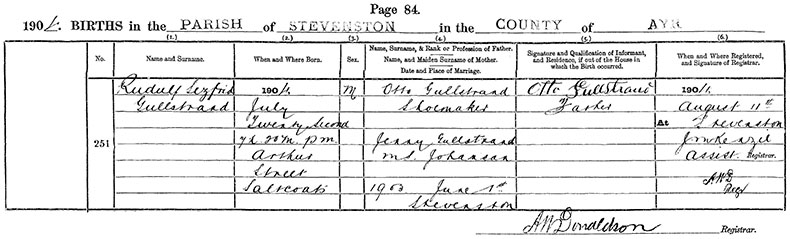 Page 84.
1904. BIRTHS in the PARISH of STEVENSTON in the COUNTY of AYR
(1.) (2.) (3.) (4.) (5.) (6.)
No. Name and Surname. When and Where Born. Sex. Name, Surname, & Rank or Profession of Father. Name, and Maiden Surname of Mother. Date and Place of Marriage. Signature and Qualification of Informant, and Residence, if out of the House in which the Birth occurred. When and Where Registered, and Signature of Registrar.
251
Rudolf
Gullstrand
1904.
July
Twenty Second
P.M.
Arthur
Street
Saltcoats
M
Otto Gullstrand
Shoemaker
Jenny Gullstrand
ms Johansan
1903 June 1st
Stevenston
Otto Gullstrand
Father
1904.
August 11th
At Stevenston
Assist. Registrar.
AWD
Regr
AW Donaldson Registrar.